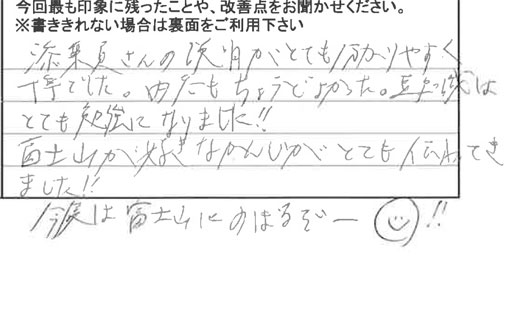 今回最も印象に残ったことや、改善点をお聞かせください。
※書ききれない場合は裏面をご利用下さい
添乗員さんの説明がとても分かりやすく
丁寧でした。内容もちょうどよかった。豆知識は
とても勉強になりました!!
富士山が好きなかんじがとても伝わってき
ました!!
今度は富士山にのぼるぞー !!